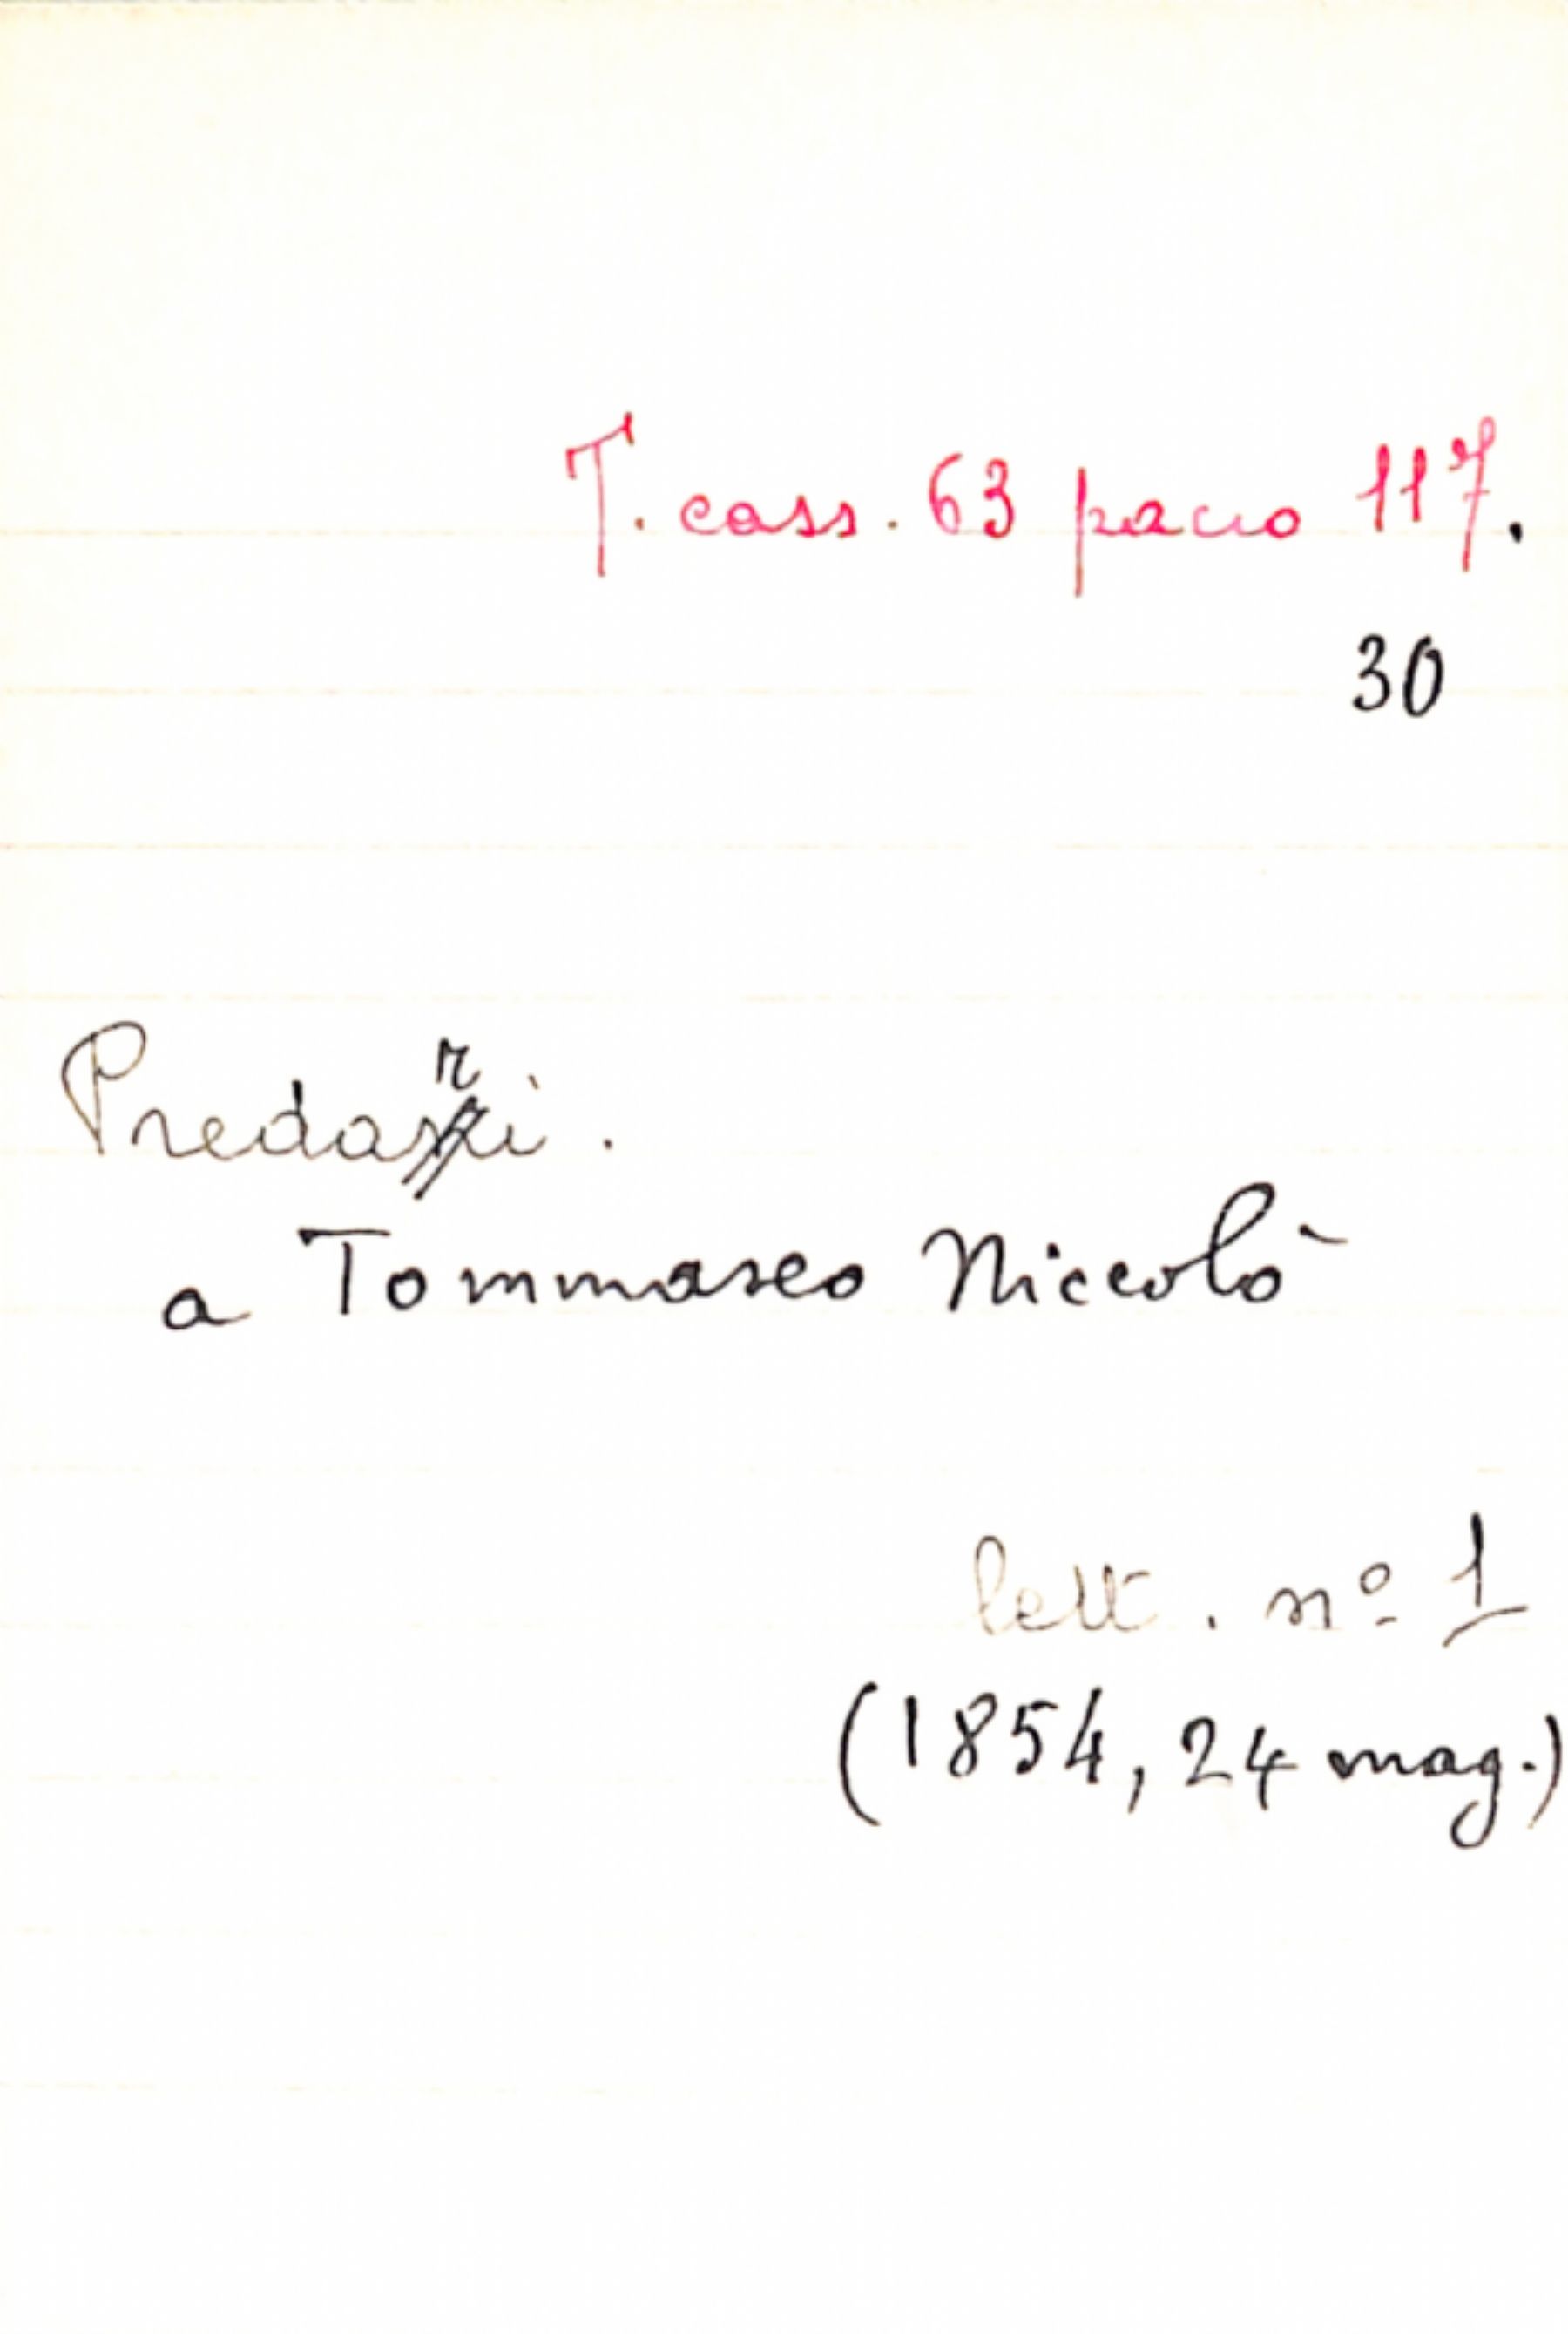 T. cass. 63 pacco 117.
30
Predari.
a Tommaseo Niccolò
lett. nº 1
(1854, 24 mag.)